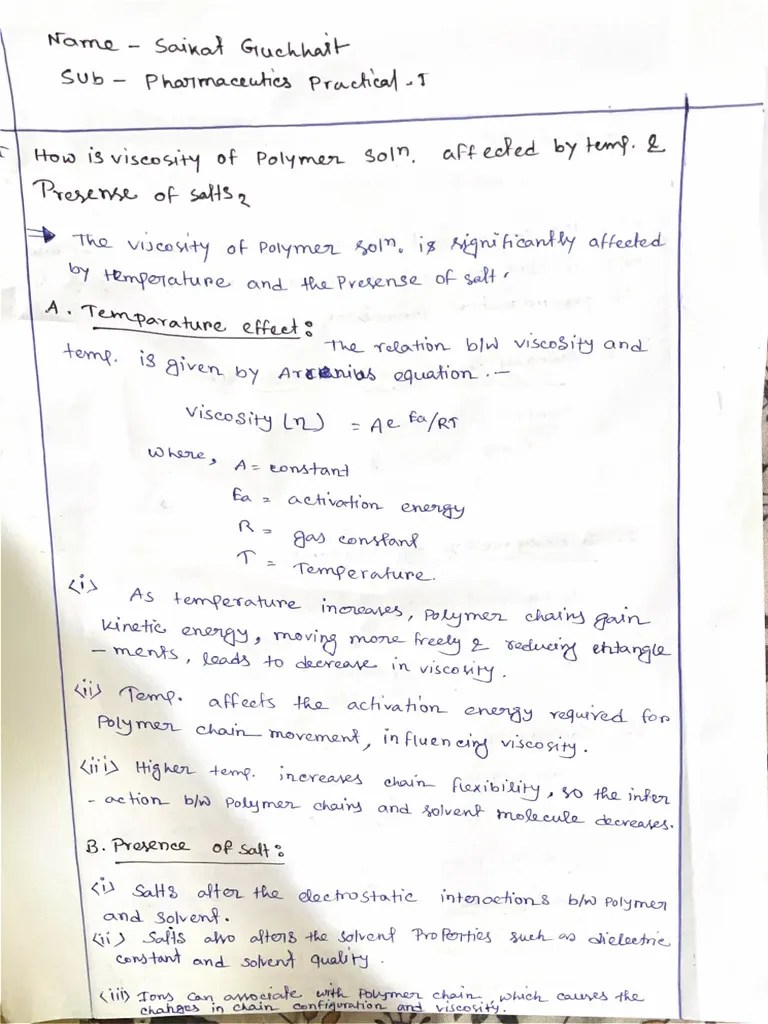 Name - Saikat Guchhait
Sub - Pharmaceutics Practical - I
How is viscosity of Polymer soln. affected by temp. &
Presense of salts?
⇒ The viscosity of Polymer soln. is significantly affected
by temperature and the Presense of salt.
A. Temparature effect:
The relation b/w viscosity and
temp. is given by Arrenius equation. -
Viscosity (η) = Ae Ea/RT
where, A = constant
Ea = activation energy
R = gas constant
T = Temperature.
<i> As temperature increases, Polymer chains gain
kinetic energy, moving more freely & reducing entangle
- ments, leads to decrease in viscosity.
<ii> Temp. affects the activation energy required for
Polymer chain movement, influencing viscosity.
<iii> Higher temp. increases chain flexibility, so the inter
- action b/w Polymer chains and solvent molecule decreases.
B. Presence of salt:
<i> Salts alter the electrostatic interactions b/w Polymer
and solvent.
<ii> Salts also alters the solvent Properties such as dielectric
constant and solvent quality.
<iii> Ions can associate with Polymer chain, which causes the
changes in chain configuration and viscosity.